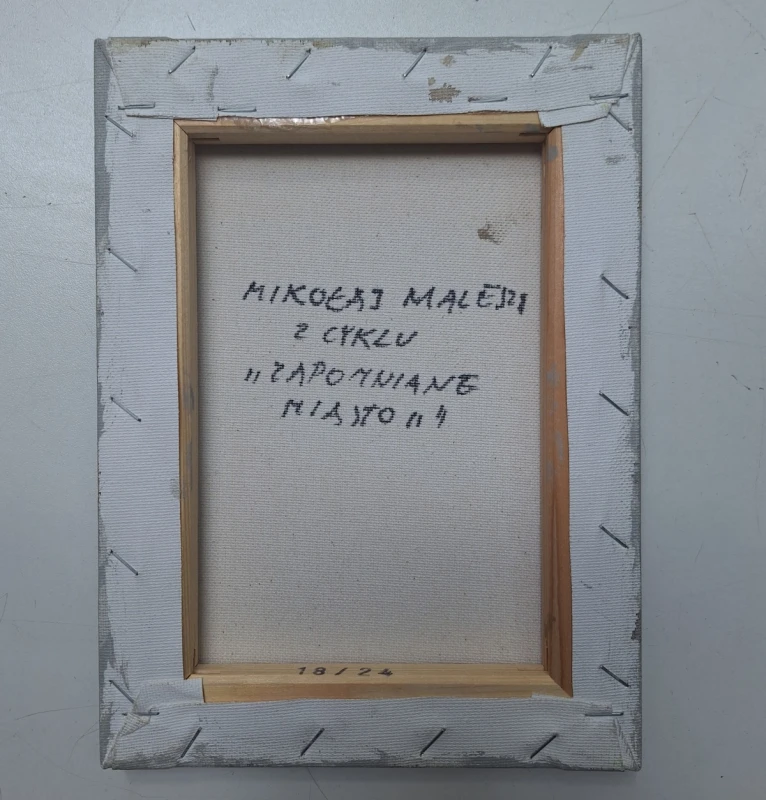 MIKOŁAJ MALESZA
Z CYKLU
„ZAPOMNIANE
MIASTO„ 4
18/24